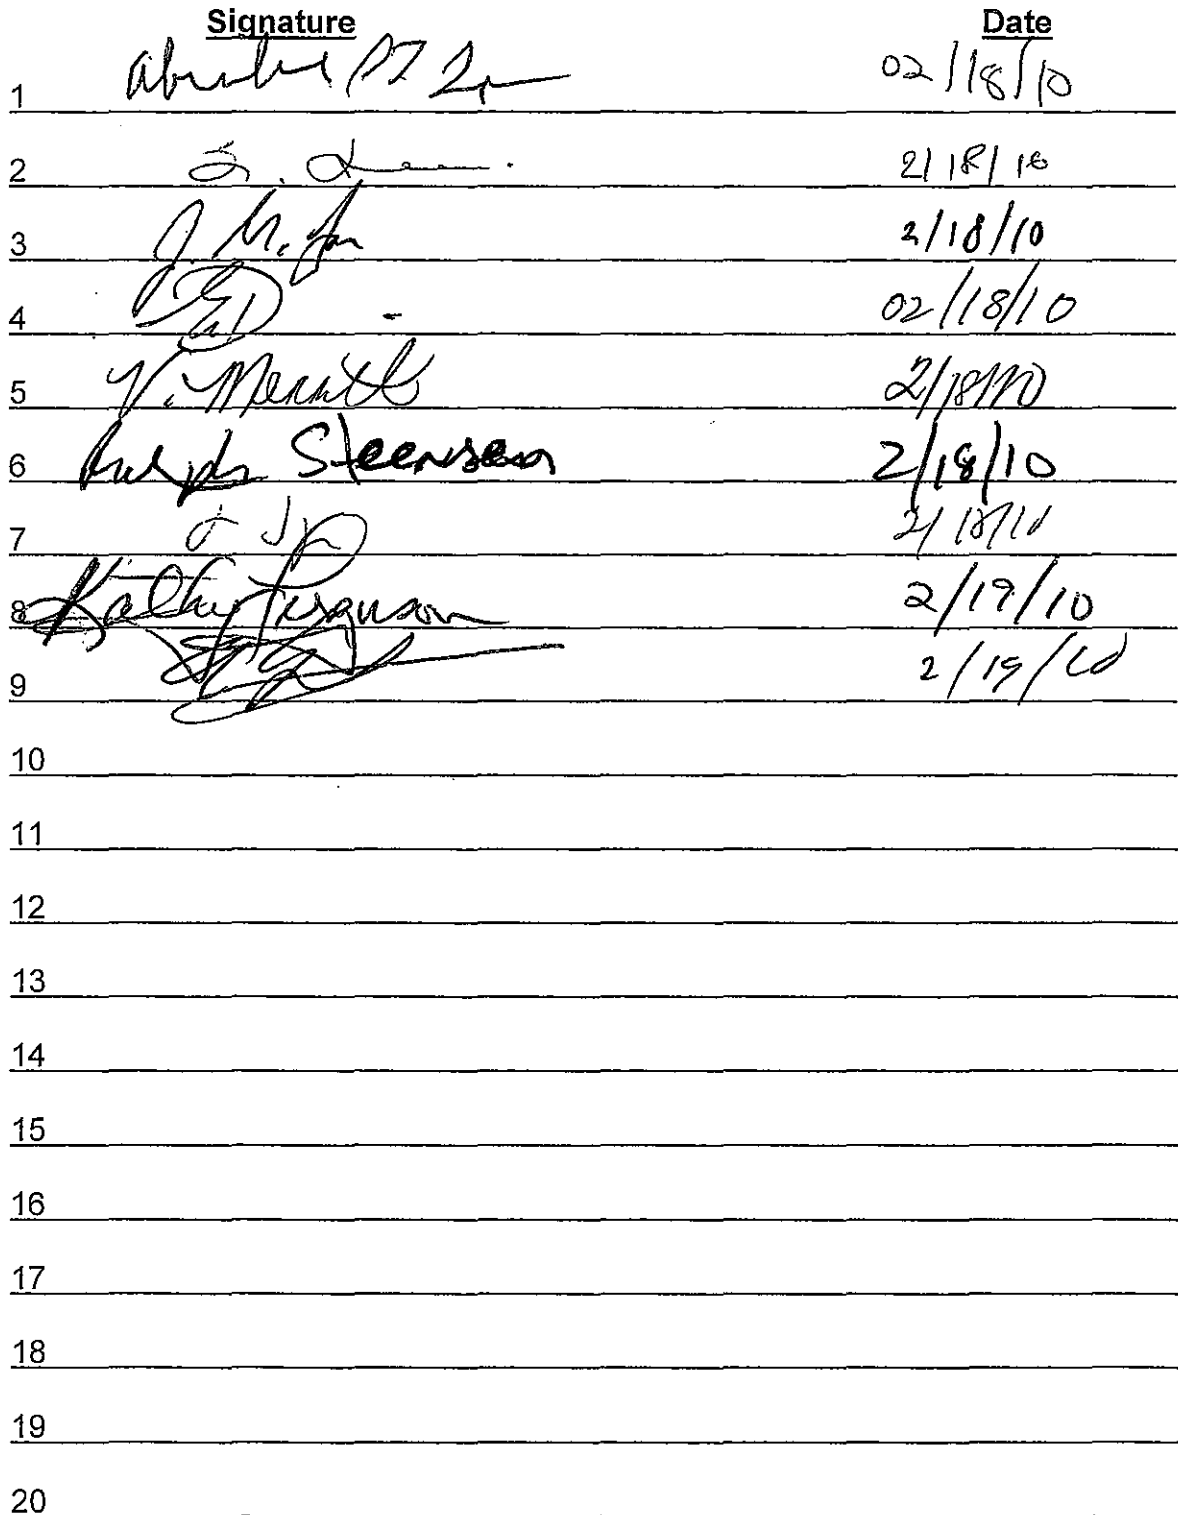 Signature Date
1 02/18/10
2 2/18/10
3 J. M. 2/18/10
4 02/18/10
5 V. Merritt 2/18/10
6 Ralph Steensen 2/18/10
7 2/18/10
8 Kathy Ferguson 2/19/10
9 2/19/10
10
11
12
13
14
15
16
17
18
19
20